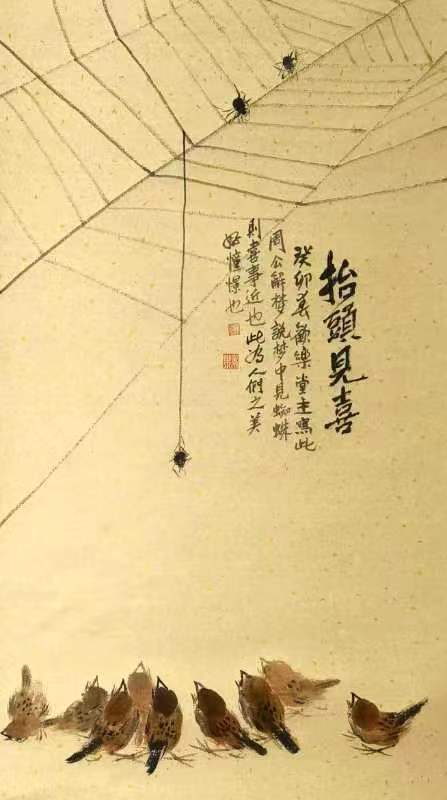 抬頭見喜
癸卯歡樂堂主寫此
周公解梦說梦中見蜘蛛
則喜事近也此為人們之美
好憧憬也